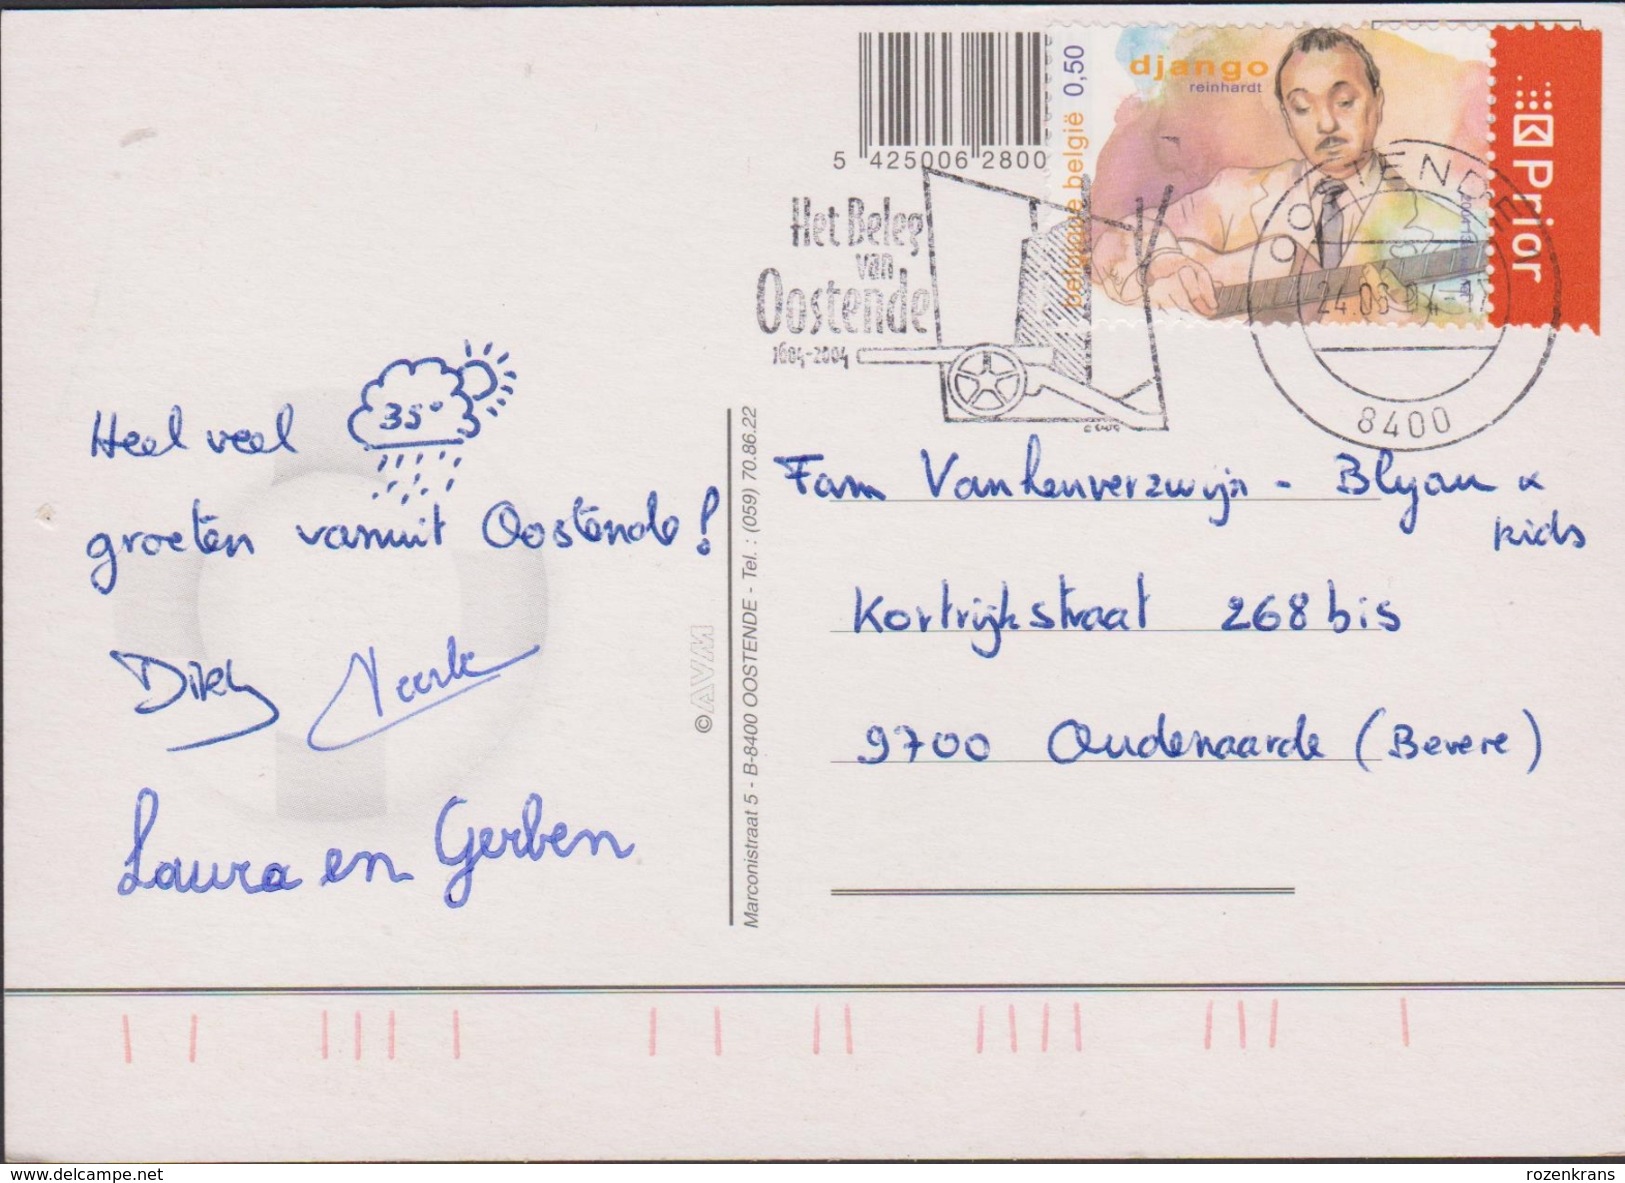 django
reinhardt
0,50
belgique belgië
Prior
5 425006 2800
Het Beleg
van
Oostende
1604-2004
OOSTENDE
24.06.04-17
8400
Heel veel 35°
groeten vanuit Oostende!
Dirk
Laura en Gerben
©AVM
Marconistraat 5 - B-8400 OOSTENDE - Tel. : (059) 70.86.22
Fam Vanhenverzwijn - Blyau &
kids
Kortrijkstraat 268 bis
9700 Oudenaarde (Bevere)
www.delcampe.net
rozenkrans